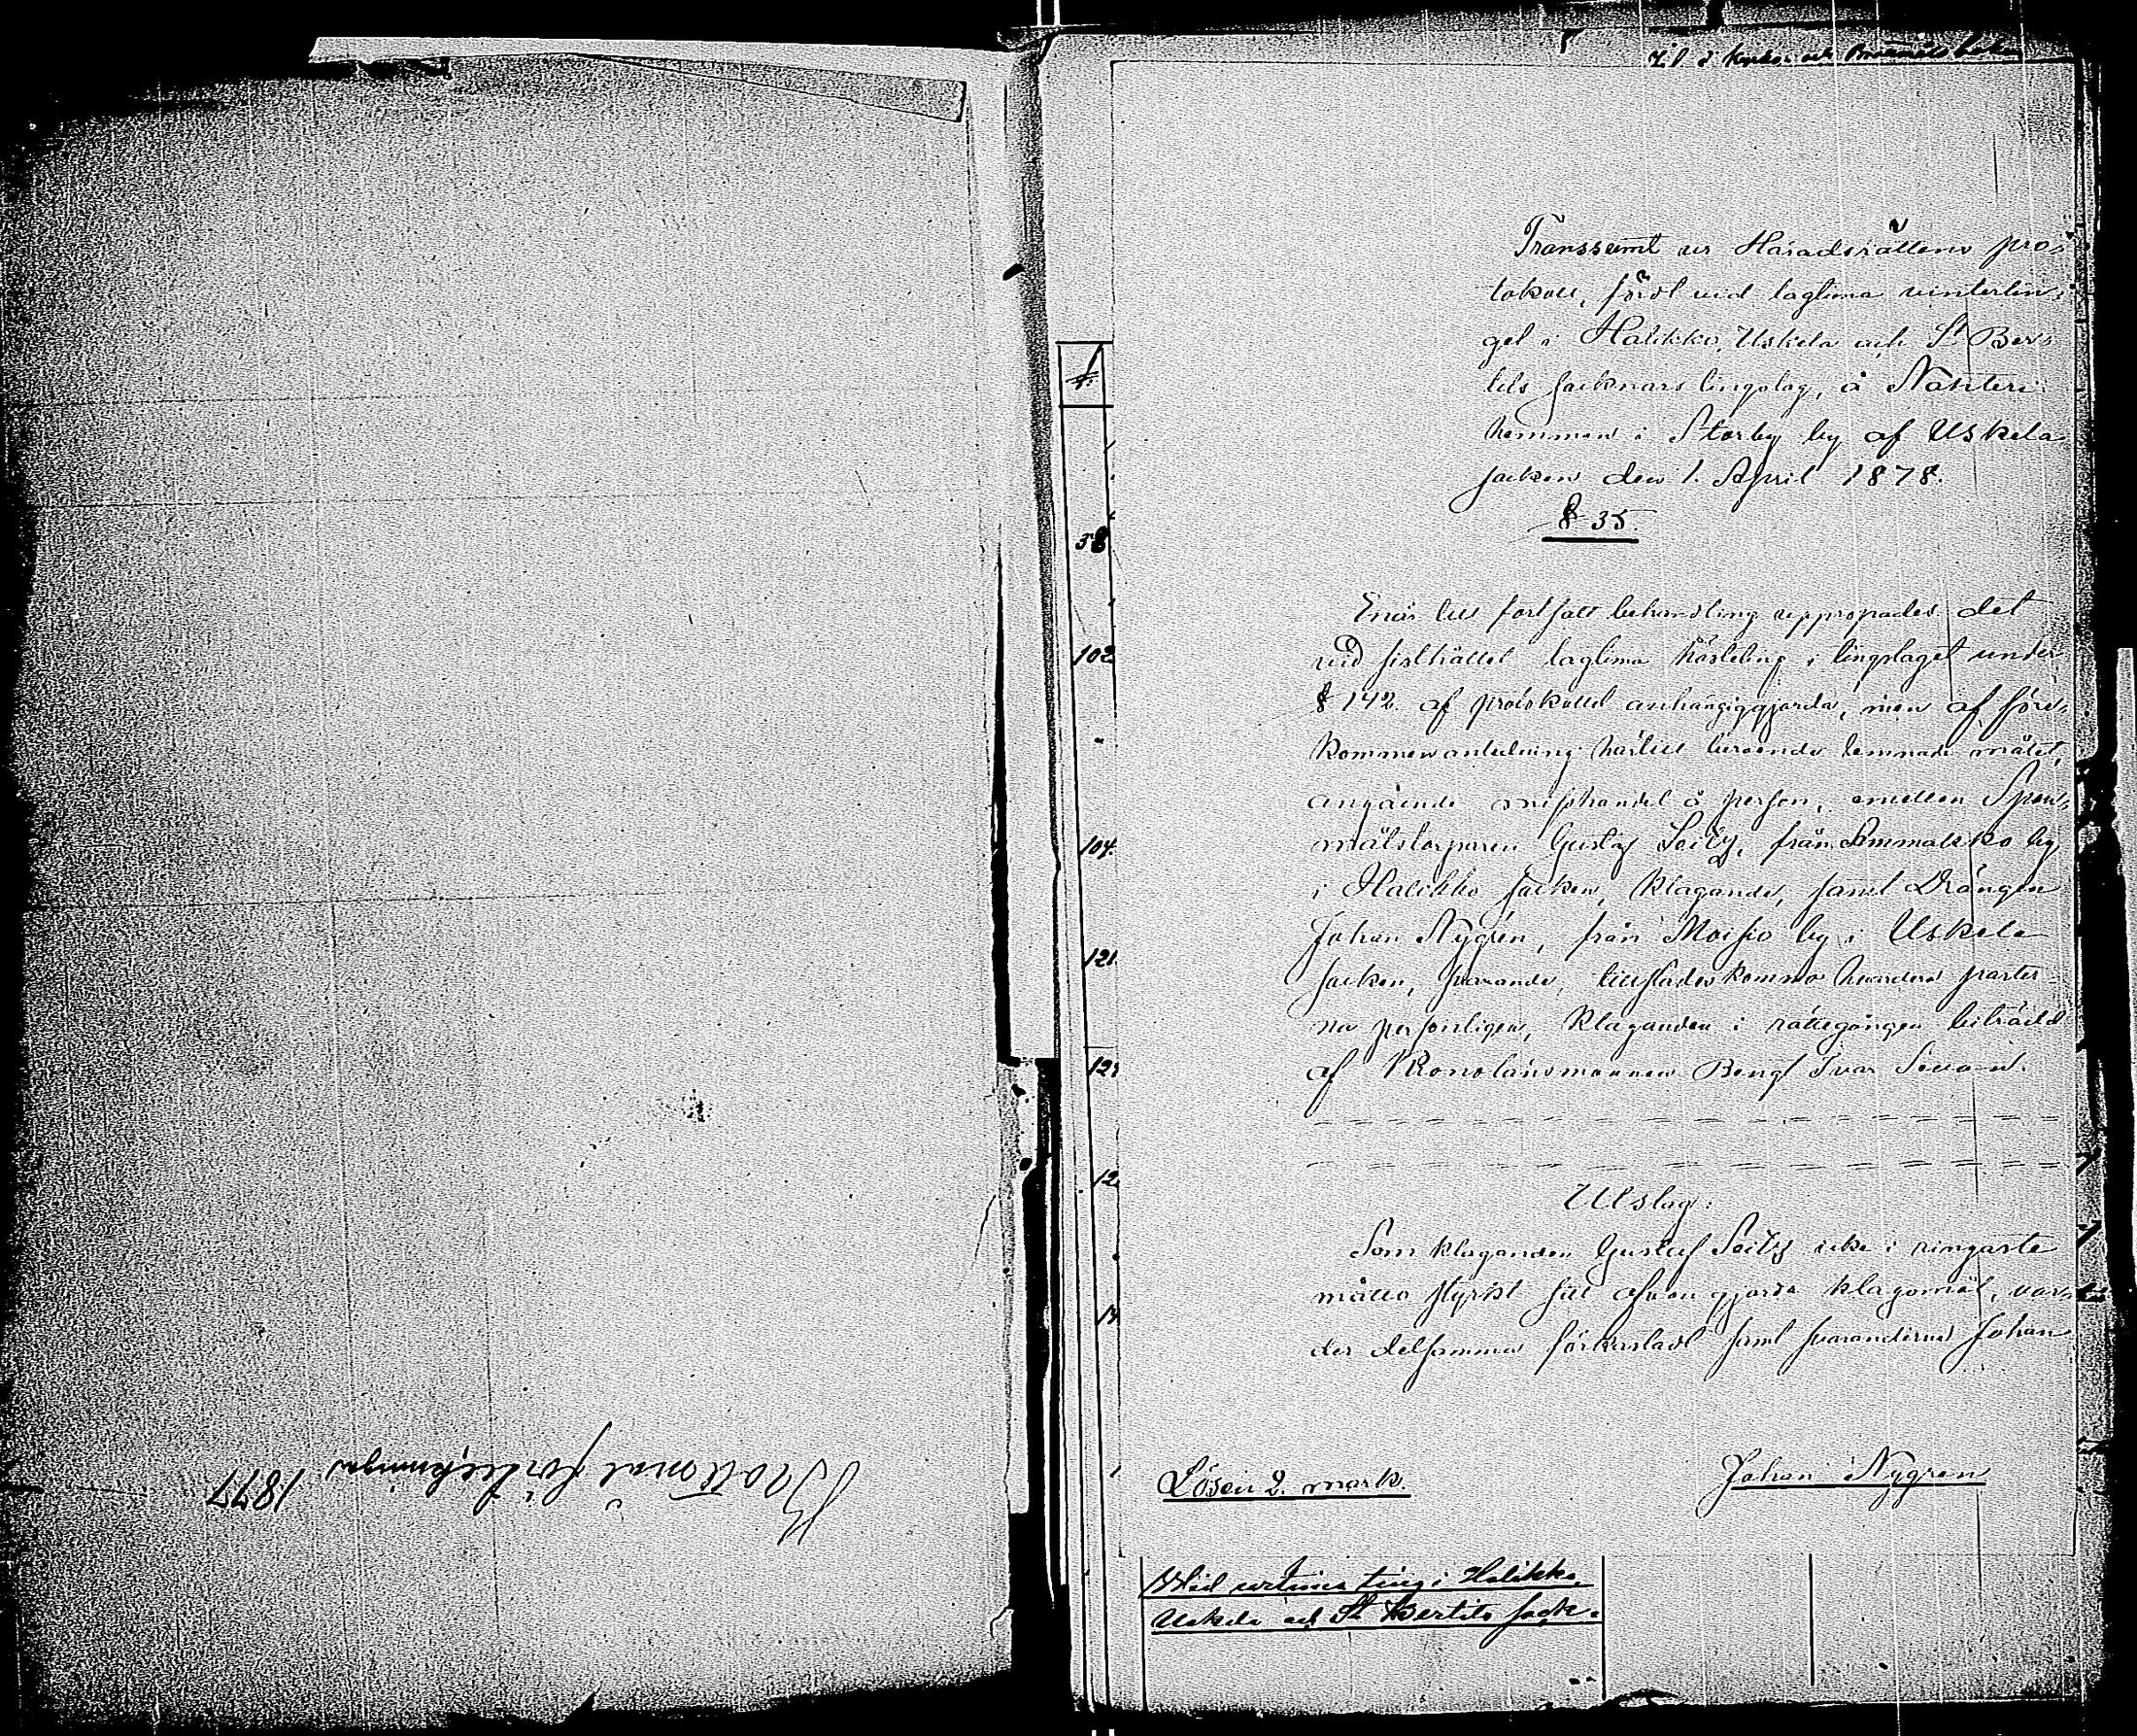 Brottmål förteckningar 1877
Transsumt ur Häradsrättens pro-
tokoll, fördt vid lagtima vintertin-
get i Halikko, Uskela och St Ber-
tils socknars tingslag, å Näkteri
hemman i Storby by af Uskela
socken den 1. April 1878.
§ 35.
Enär till fortsatt behandling uppropades det
vid sisthållet lagtima hösteting i tingslaget under
§ 142 af protokollet anhängiggjorda, men af före-
kommen anledning härtill beroende lemnade målet,
angående misshandel å person, emellan Span-
målstorparen Gustaf Seitz, från by
i Halikko socken, klagande, samt Drängen
Johan Nygren, från Moisio by i Uskela
socken, svarande, tillstädeskommo hvardera parter-
na personligen, klaganden i rättegången biträdd
af Kronolänsmannen Bengt Ivar
Utslag:
Som klaganden Gustaf Seitz icke i ringaste
måtto styrkt sitt ofvan gjorda klagomål, var-
der detsamma förkastadt samt svaranderne Johan
Lösen 2. mark.
Johan Nygren
ting i Halikko,
Uskela och St Bertils sock-
1
38
102
104.
121.
12
12
14